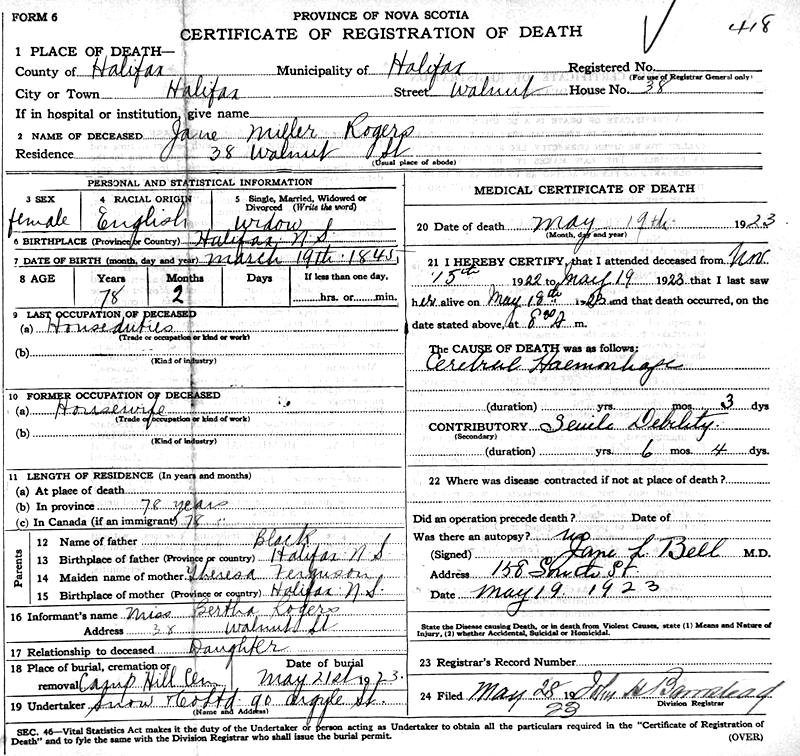 FORM 6
PROVINCE OF NOVA SCOTIA
418
CERTIFICATE OF REGISTRATION OF DEATH
1 PLACE OF DEATH—
County of Halifax Municipality of Halifax Registered No.
(For use of Registrar General only)
City or Town Halifax Street Walnut House No. 38
If in hospital or institution, give name
2 NAME OF DECEASED Jane Miller Rogers
Residence 38 Walnut St
(Usual place of abode)
PERSONAL AND STATISTICAL INFORMATION
3 SEX 4 RACIAL ORIGIN 5 Single, Married, Widowed or Divorced (Write the word)
female English Widow
6 BIRTHPLACE (Province or Country) Halifax N.S.
7 DATE OF BIRTH (month, day and year) March 19th 1845
8 AGE Years Months Days If less than one day,
78 2 hrs. or min.
9 LAST OCCUPATION OF DECEASED
(a) Houseduties
(Trade or occupation or kind or work)
(b)
(Kind of industry)
10 FORMER OCCUPATION OF DECEASED
(a) Housewife
(Trade or occupation or kind of work)
(b)
(Kind of industry)
11 LENGTH OF RESIDENCE (In years and months)
(a) At place of death
(b) In province 78 years
(c) In Canada (if an immigrant) 78
Parents
12 Name of father Black
13 Birthplace of father (Province or country) Halifax N S
14 Maiden name of mother Theresa Ferguson
15 Birthplace of mother (Province or country) Halifax N.S.
16 Informant's name Miss Bertha Rogers
Address 38 Walnut St
17 Relationship to deceased Daughter
18 Place of burial, cremation or removal Camp Hill Cem Date of burial May 21st 1923
19 Undertaker Snow & Co Ltd 90 Argyle St.
(Name and Address)
MEDICAL CERTIFICATE OF DEATH
20 Date of death May 19th 1923
(Month, day and year)
21 I HEREBY CERTIFY, that I attended deceased from Nov.
15th 1922 to May 19 1923 that I last saw
her alive on May 18th 1923 and that death occurred, on the
date stated above, at 8 m.
The CAUSE OF DEATH was as follows:
Cerebral Haemorrhage
(duration) yrs. mos. 3 dys
CONTRIBUTORY Senile Debility.
(Secondary)
(duration) yrs. 6 mos. 4 dys.
22 Where was disease contracted if not at place of death?
Did an operation precede death? Date of
Was there an autopsy? no
(Signed) Jane L Bell M.D.
Address 158 South St
Date May 19. 1923
State the Disease causing Death, or in death from Violent Causes, state (1) Means and Nature of Injury, (2) whether Accidental, Suicidal or Homicidal.
23 Registrar's Record Number
24 Filed May 28 1923 John H
Division Registrar
SEC. 46—Vital Statistics Act makes it the duty of the Undertaker or person acting as Undertaker to obtain all the particulars required in the "Certificate of Registration of
Death" and to fyle the same with the Division Registrar who shall issue the burial permit.
(OVER)